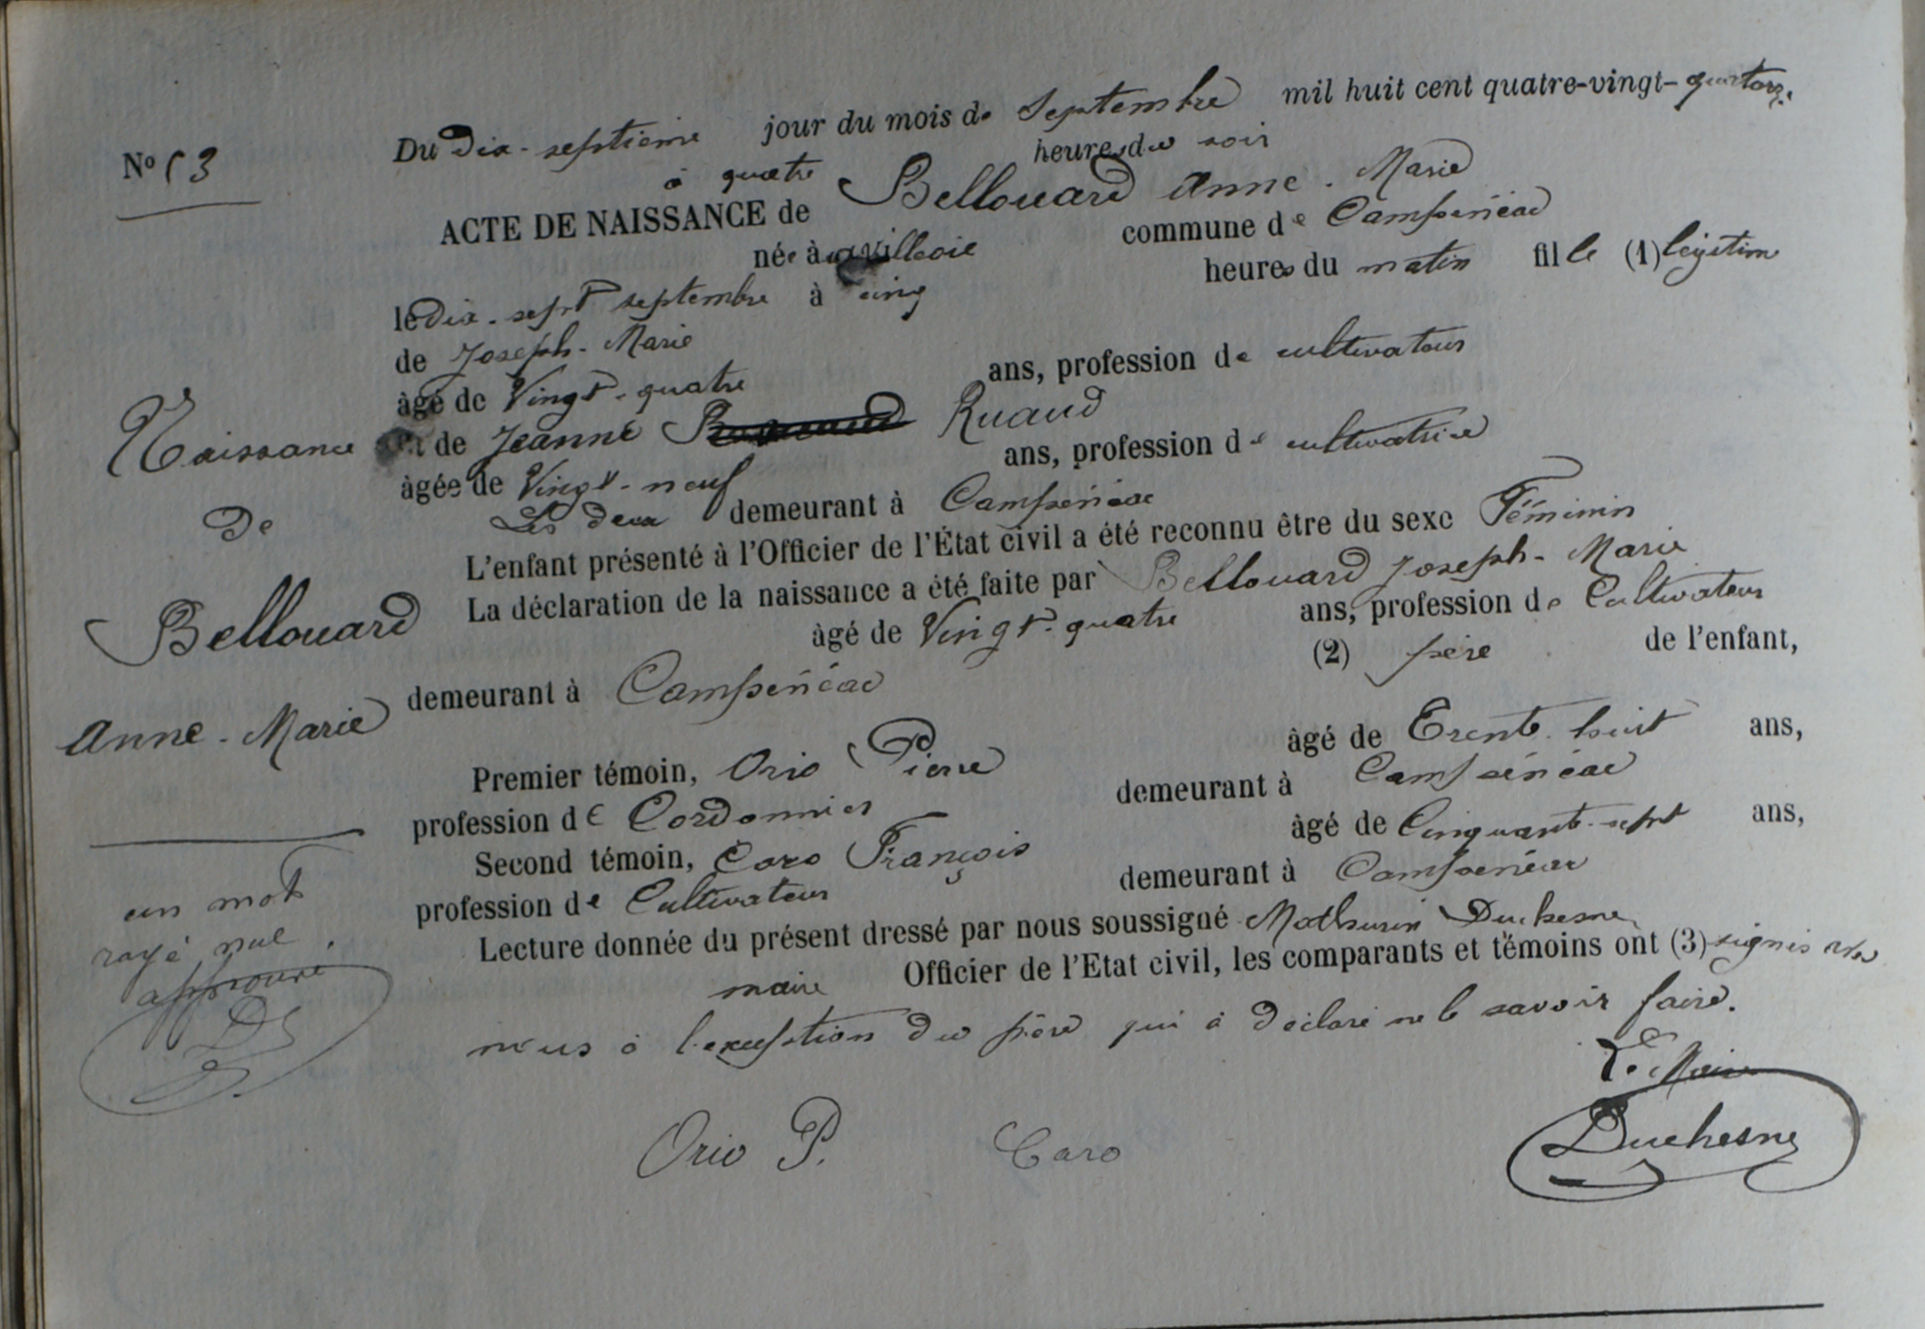 Du dix-septième jour du mois de Septembre mil huit cent quatre-vingt-quatorze
à quatre heures du soir
No 53
ACTE DE NAISSANCE de Bellouard Anne-Marie
née à commune de Campénéac
le dix-sept septembre à cinq heures du matin fille (1) légitime
de Joseph-Marie
âgé de Vingt-quatre ans, profession de cultivateur
et de Jeanne Ruaud
âgée de Vingt-neuf ans, profession de cultivatrice
Les deux demeurant à Campénéac
L'enfant présenté à l'Officier de l'État civil a été reconnu être du sexe Féminin
La déclaration de la naissance a été faite par Bellouard Joseph-Marie
âgé de Vingt-quatre ans, profession de Cultivateur
demeurant à Campénéac (2) père de l'enfant,
Premier témoin, Orio Pierre âgé de Trente-huit ans,
profession de Cordonnier demeurant à Campénéac
Second témoin, Caro François âgé de Cinquante-sept ans,
profession de Cultivateur demeurant à Campénéac
Lecture donnée du présent dressé par nous soussigné Mathurin Duchesne
maire Officier de l'Etat civil, les comparants et témoins ont (3) signés avec
nous à l'exception du père qui a déclaré ne le savoir faire.
Le Maire
Orio P. Caro Duchesne
Naissance
De
Bellouard
Anne-Marie
un mot
rayé nul
approuvé